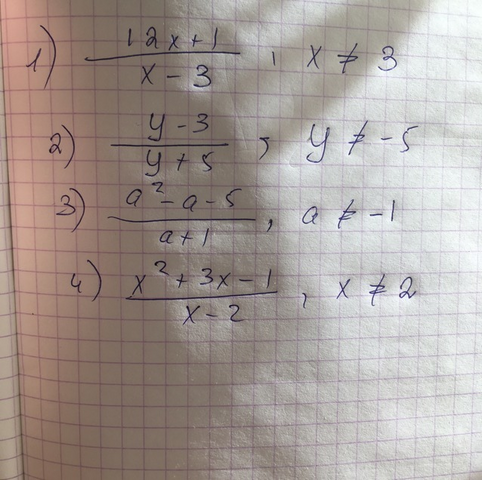 1) (12x+1)/(x-3), x ≠ 3
2) (y-3)/(y+5); y ≠ -5
3) (a²-a-5)/(a+1), a ≠ -1
4) (x²+3x-1)/(x-2), x ≠ 2